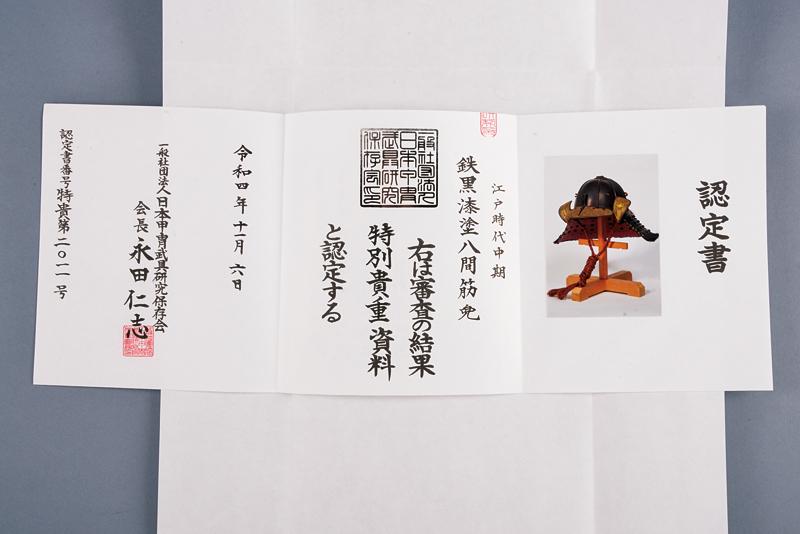 認定書
江戸時代中期
鉄黒漆塗八間筋兜
右は審査の結果
特別貴重資料
と認定する
一般社団法人
日本甲冑
武具研究
保存会印
令和四年十一月六日
一般社団法人日本甲冑武具研究保存会
会長 永田仁志
認定書番号特貴第二〇一一号